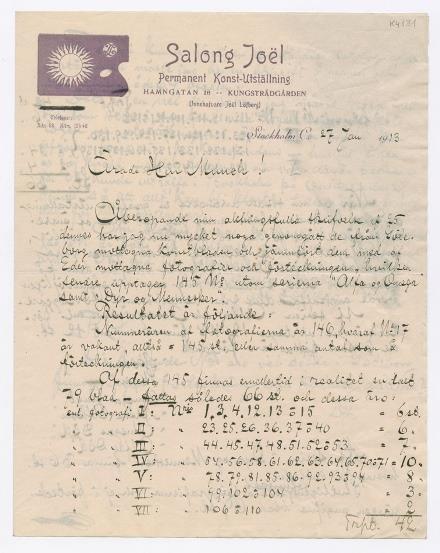 K4131
Salong Joël
Permanent Konst-Utställning
HAMNGATAN 16 -- KUNGSTRÄDGÅRDEN
(Innehafvare Joël Löfberg)
Telefoner:
Stockholm C. 27 Jan 1913
Ärade Herr Munch!
Åberopande min aktningsfulla skrifvelse af 25
dennes har jag nu mycket noga genomgått de från Göte-
borg mottagna Konstbladen och jämfört dem med af
Eder mottagna fotografier och förteckningen, hvilken
senare upptager 145 No utom serierna "Alfa og Omega"
samt Dyr og Mennesker.
Resultatet är följande:
Nummerären af fotografierna är 146, hvaraf No 97
är vakant, alltså = 145 st, eller samma antal som å
förteckningen.
Af dessa 145 finnas emellertid i realitet endast
79 blad - fattas således 66 st. och dessa äro:
enl. fotografi I: Nris 1, 3, 4, 12, 13 o 15 = 6 st.
" II: " 23, 25, 26, 36, 37 o 40 = 6 "
" III: " 44, 45, 47, 48, 51, 52 o 53 = 7 "
" IV: " 54, 56, 58, 61, 62, 63, 64, 65, 70 o 71 = 10 "
" V: " 78, 79, 81, 85, 86, 92, 93 o 94 = 8 "
" VI: " 99, 102 o 104 = 3 "
" VII: " 106 o 110 = 2
Trpt. 42